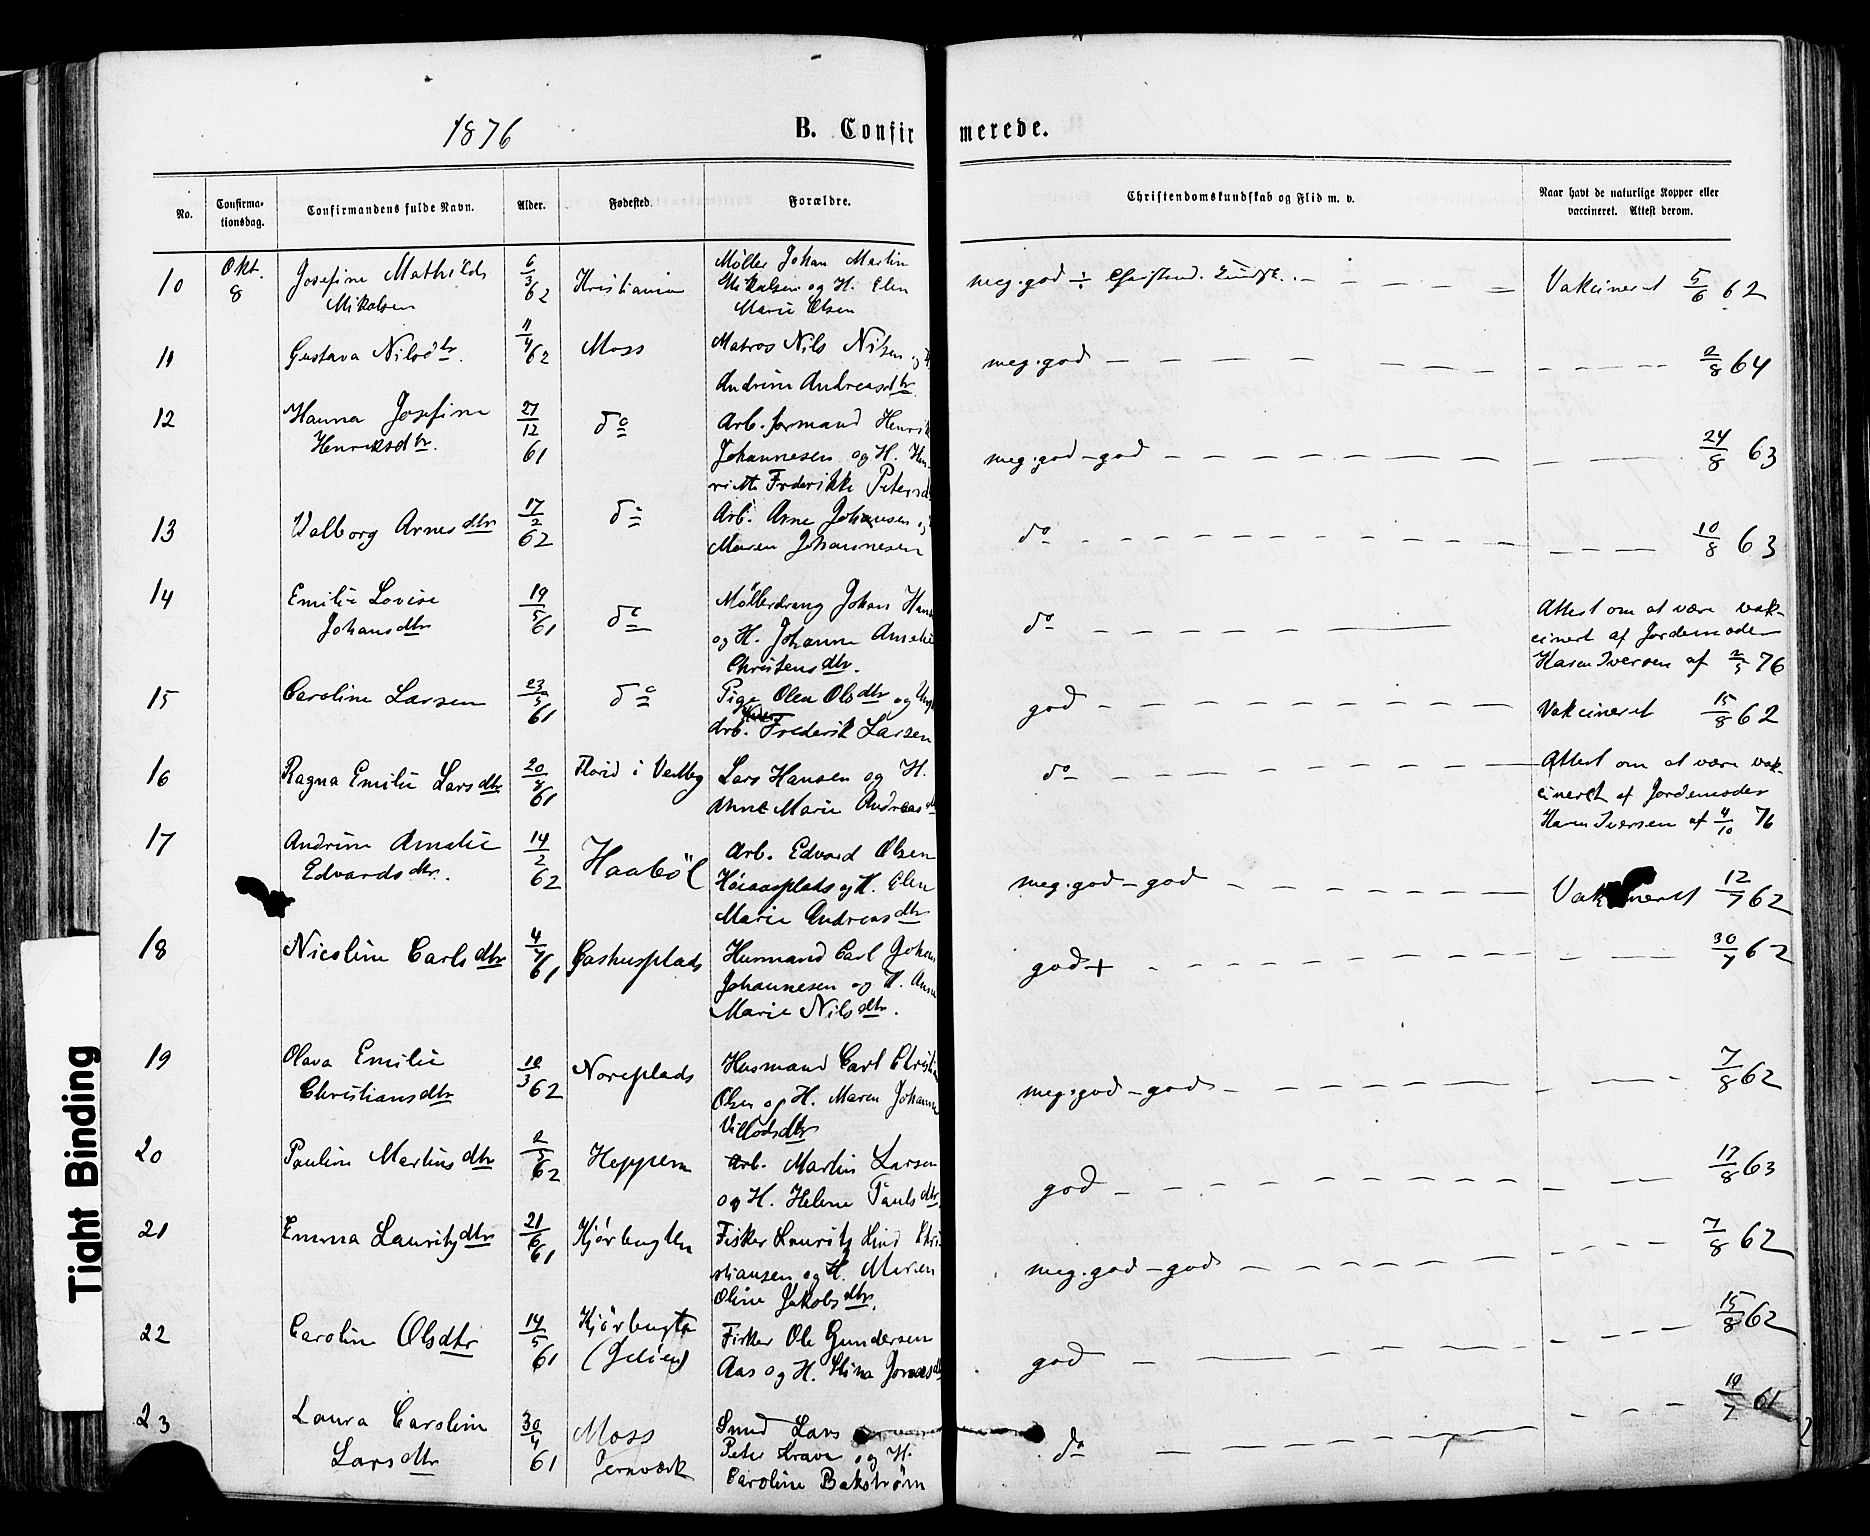 1876
B. Confirmerede.
No.
Confirma-
tionsdag.
Confirmandens fulde Navn.
Alder.
Fødested.
Forældre.
Christendomskundskab og Flid m. v.
Naar havt de naturlige Kopper eller
vaccineret. Attest derom.
10 Okt. 8 Josefine Mathilde 6/3 62 Kristiania Møller Johan Martin
Mikalsen Mikalsen og H. Elen
Marie Olsen
meg. god ÷ Christend. Kundsk. Vakcineret 5/6 62
11 Gustava Nilsdtr. 11/4 62 Moss Matros Nils Nilsen og
Andrine Andreasdtr.
meg. god 2/8 64
12 Hanna Josefine 27/12 61 do Arb. formand Henrik
Henriksdtr. Johannesen og H. Hen-
riette Frderikke Petersd
meg. god - god 24/8 63
13 Valborg Arnesdtr 17/2 62 do Arb. Arne Johansen og
Maren Johannesen
do 10/8 63
14 Emilie Lovise 19/5 61 do Møllerdreng Johan Hans
Johansdtr og H. Johanne Amelie
Christensdtr.
do Attest om at være vak-
cinert af Jordemoder
Karen Iversen af 2/5 76
15 Caroline Larsen 23/5 61 do Pige Olea Olsdtr og Ungk
Arb. Frederik Larsen
god Vakcineret 15/8 62
16 Ragna Emilie Larsdtr 20/4 61 Florid i Vestby Lars Hansen og H.
Anne Marie Andreasd
do Attest om at være vak-
cineret af Jordemoder
Karen Iversen af 4/10 76
17 Andrine Amalie 14/2 62 Haabøl Arb. Edvard Olsen
Edvardsdtr. Høiaasplads og H. Elen
Marie Andreasdtr
meg. god - god Vakcineret 12/7 62
18 Nicoline Carlsdtr 4/4 61 Gashusplads Husmand Carl Johan
Johannesen og H. Anne
Marie Nilsdtr.
god + 30/7 62
19 Olava Emilie 10/3 62 Noreplads Husmand Carl Christian
Christiansdtr Olsen og H. Maren Johanne
meg. god - god 7/8 62
20 Pauline Martinsdtr 2/5 62 Heppern Arb. Martin Larsen
og H. Helene Paulsdtr
god 17/8 63
21 Emma Lauritzdtr 21/6 61 Kjørbugten Fisker Lauritz Lind Chri-
stiansen og H. Maren
Oline Jakobsdtr.
meg. god - god 7/8 62
22 Caroline Olsdtr 14/5 61 Kjørbugten Fisker Ole Gundersen
(Jeløen) Aas og H. Stina Jonasd
god 15/8 62
23 Laura Caroline 30/4 61 Moss Smed Lars
Larsdtr Jernværk Peter Krave og H.
Caroline Bakstrøm
do 10/7 61
Tight Binding